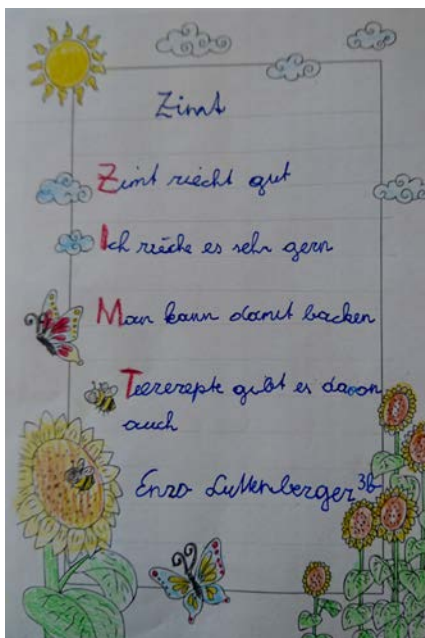 Zimt
Zimt riecht gut
Ich rieche es sehr gern
Man kann damit backen
Teererepte gibt es davon
auch
Enzo Luttenberger 3b